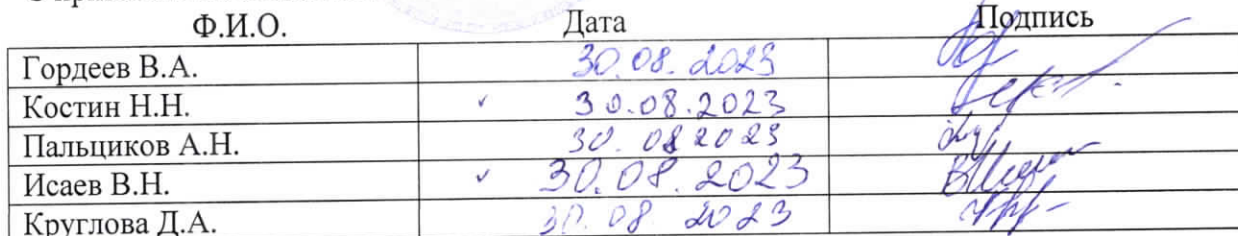 Ф.И.О. Дата Подпись
Гордеев В.А. 30.08.2023
Костин Н.Н. ✓ 30.08.2023
Пальциков А.Н. 30.08 2023
Исаев В.Н. ✓ 30.08.2023
Круглова Д.А. 30.08 2023